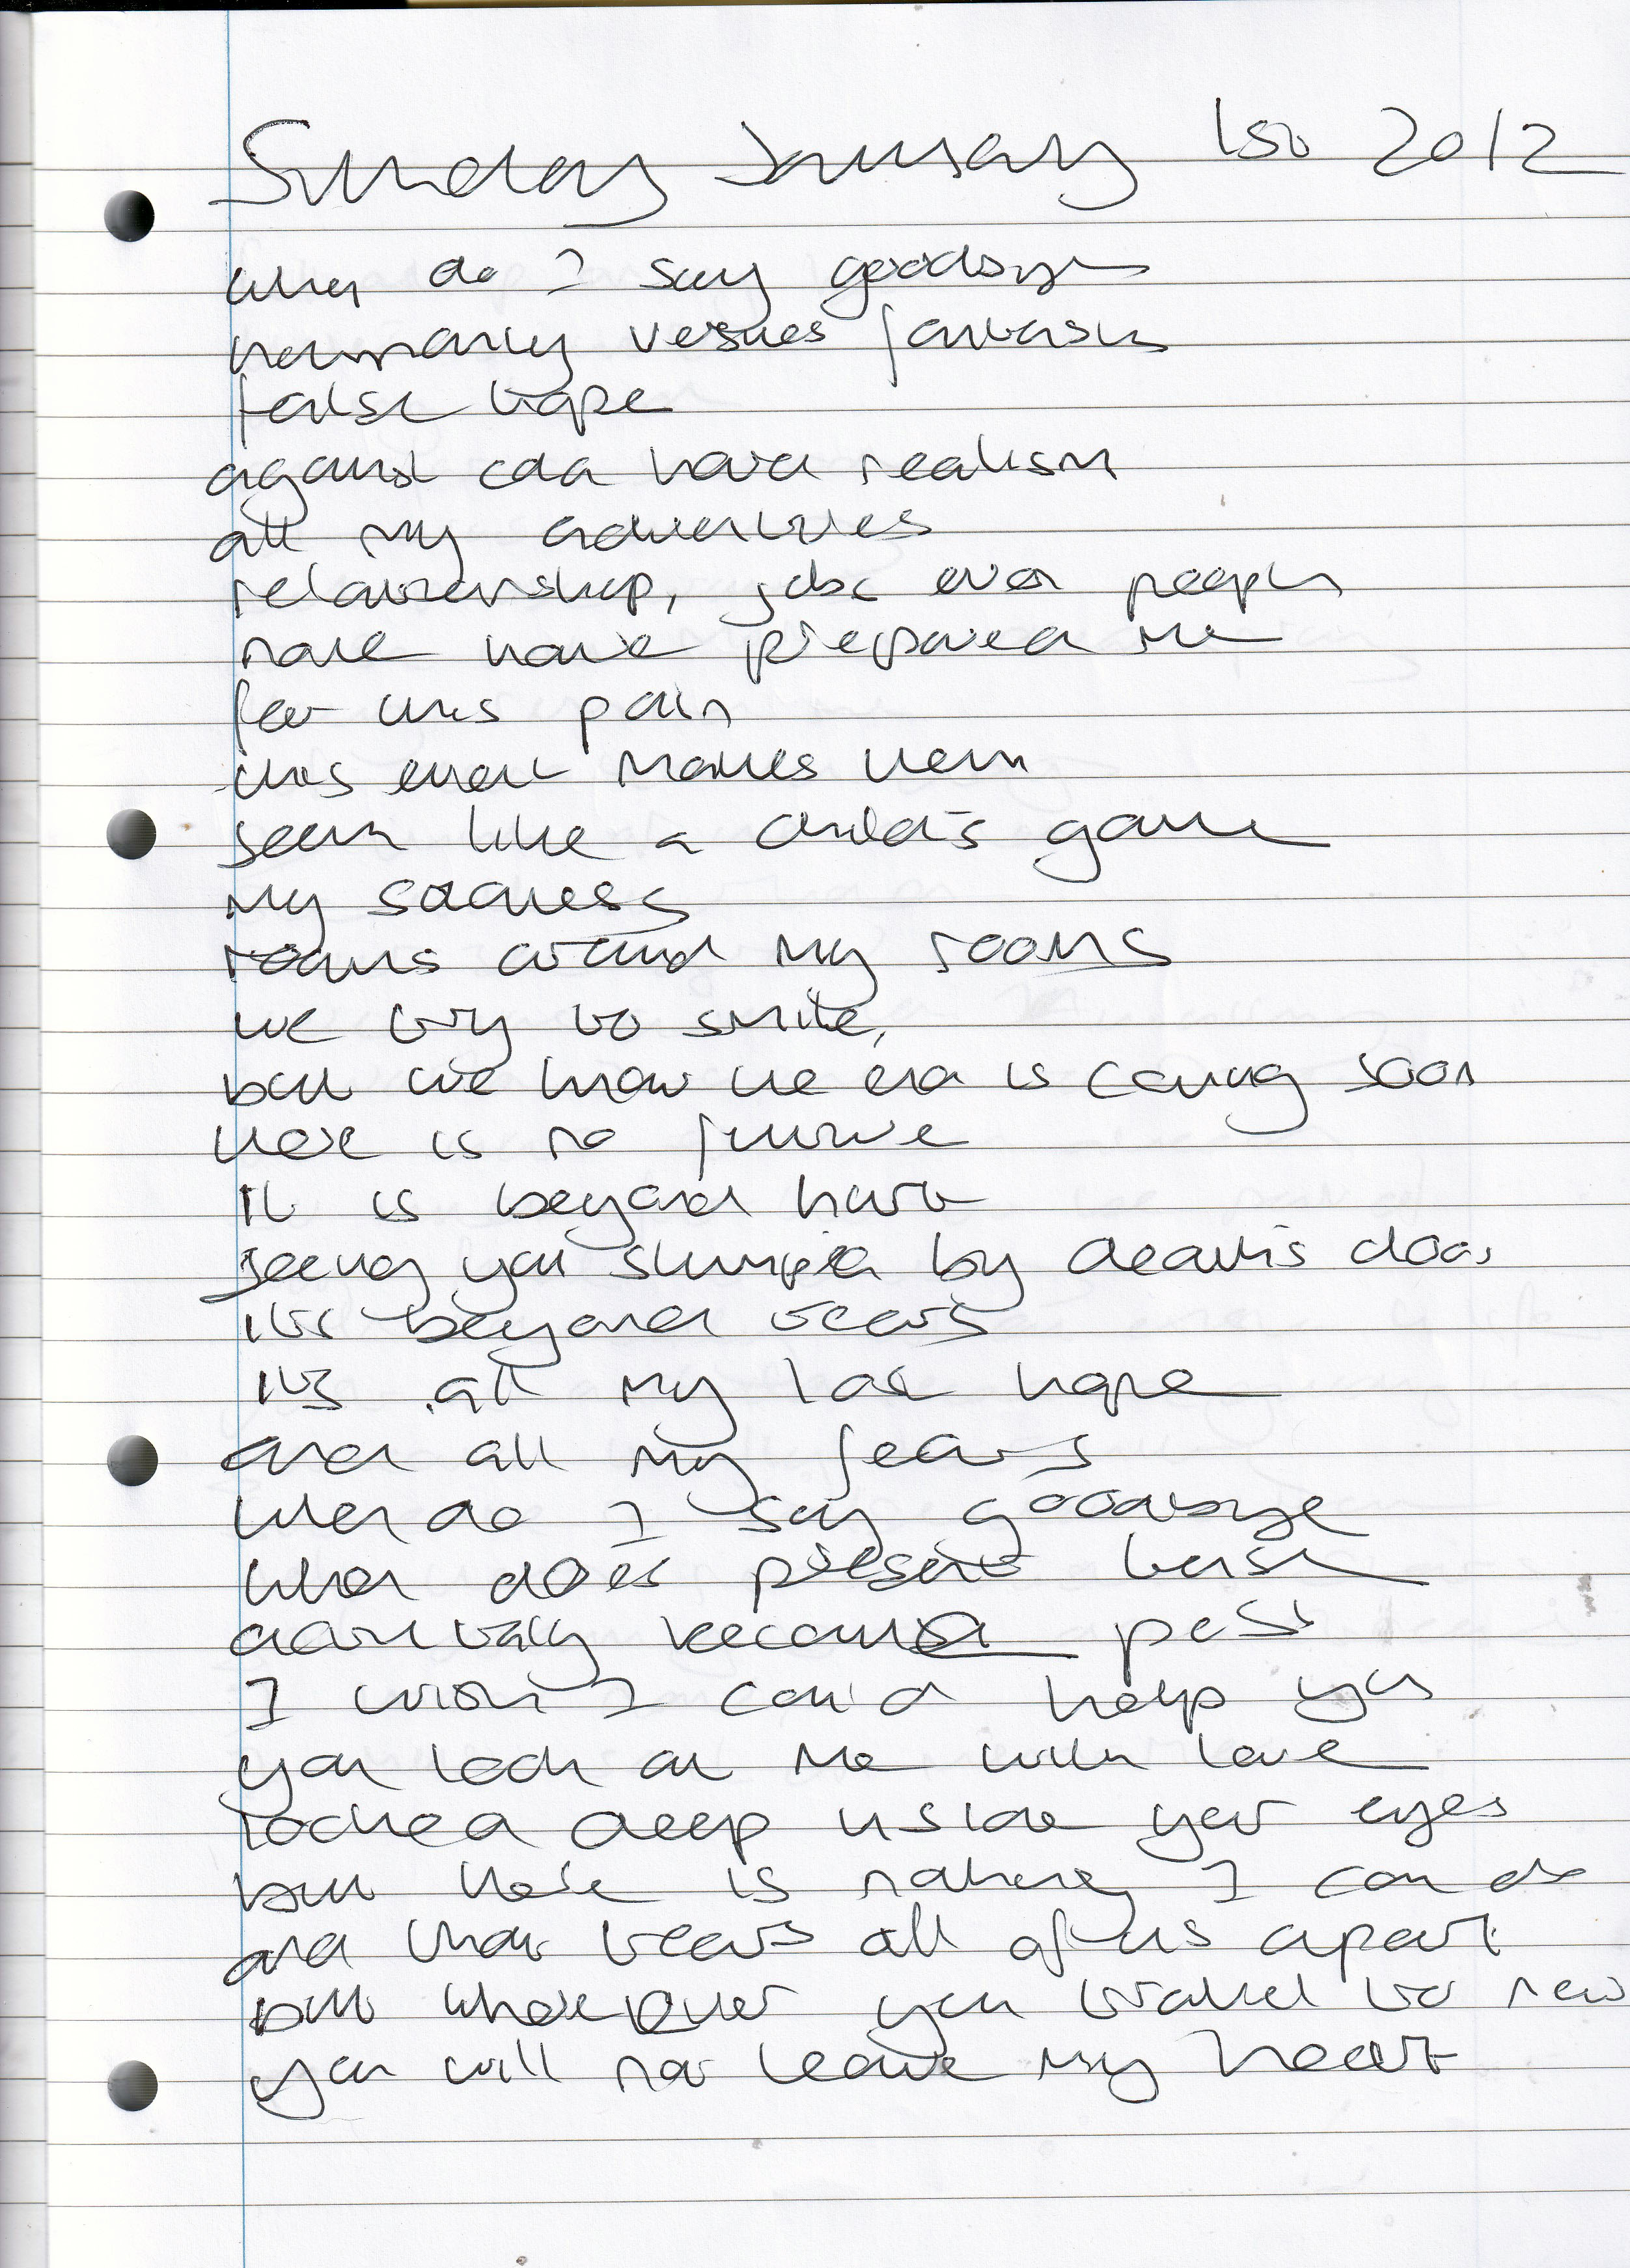 Sunday January 1st 2012
when do I say goodbye
normality versues fantasies
false hope
against cold hard realism
all my adventures
relationship, jobs even people
none have prepared me
for this pain
this event makes them
seem like a child's game
my sadness
roams around my rooms
we try to smile,
but we know the end is coming soon
there is no future
it is beyond hurt
seeing you slumped by death's door
its beyond tears
its all my lost hope
and all my fears
when do I say goodbye
when does present tense
actually become past
I wish I could help you
you look at me with love
locked deep inside your eyes
but there is nothing I can do
and that tears all of us apart
but wherever you travel to new
you will not leave my heart